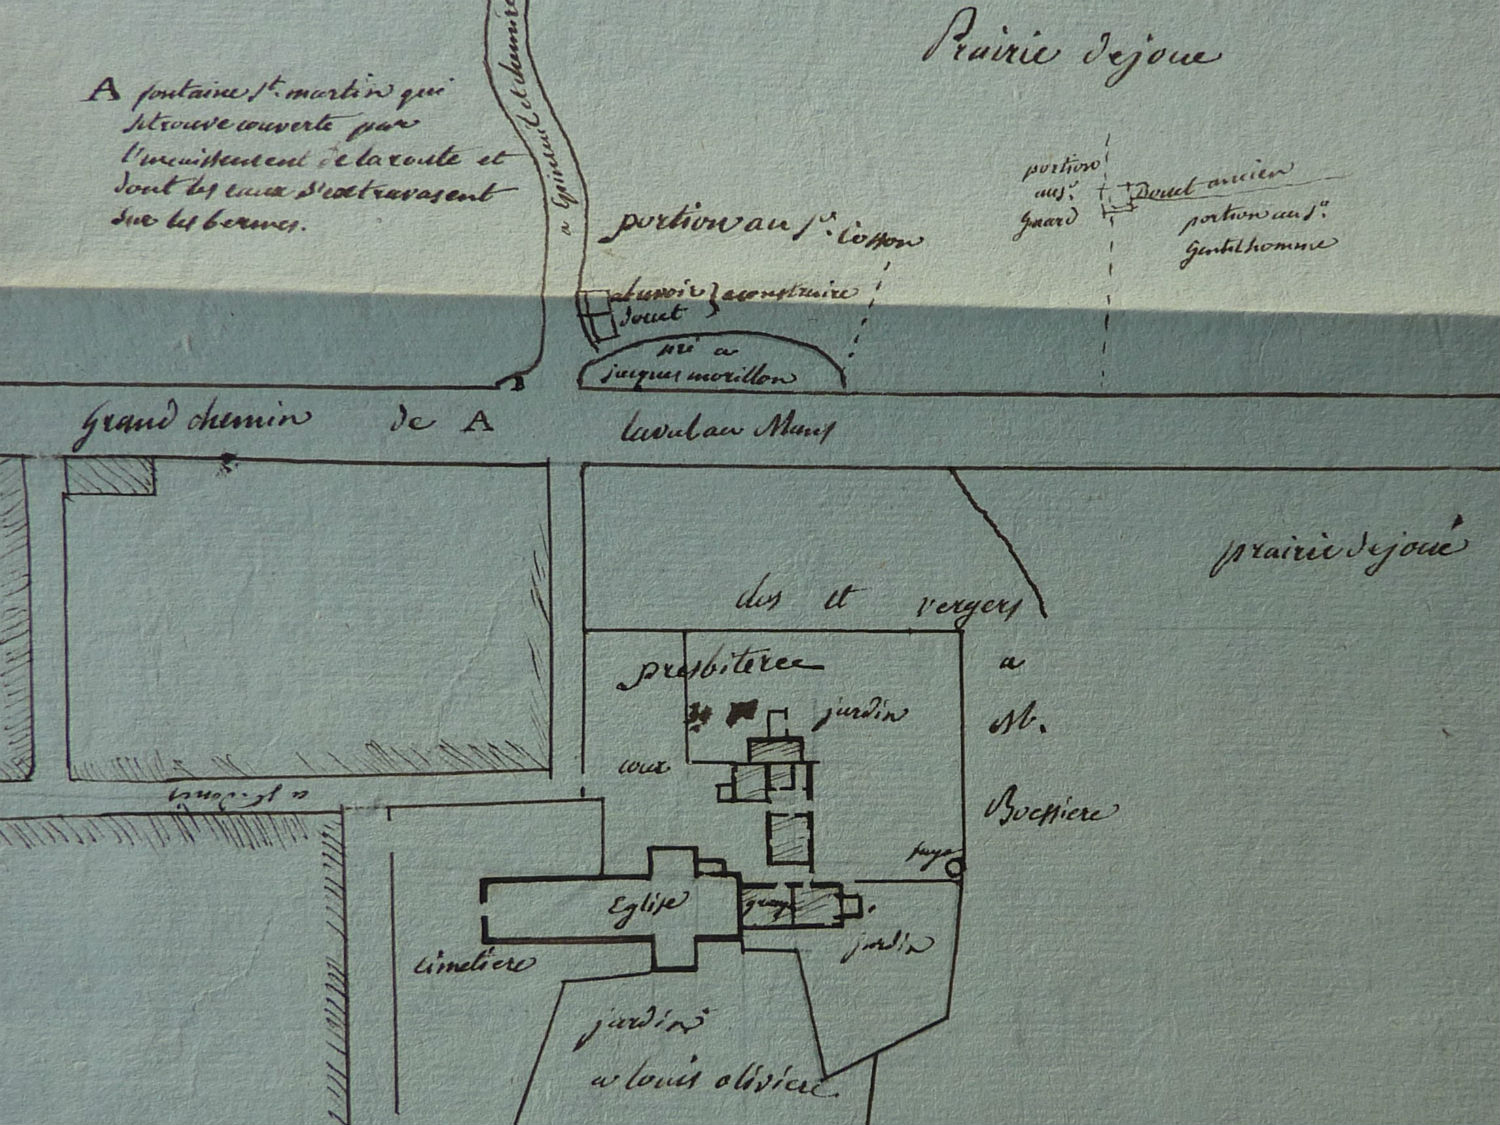 Prairie de joue
A fontaine St. martin qui
se trouve couverte par
l'encaissement de la route et
dont les eaux s'extravasent
sur les bermes.
a Epineu et chemiré
portion au Sr. Cosson
portion
au sr
Guard
Douet ancien
portion au sr.
Gentilhomme
abuvoir } a construire
douet
pré a
jacques morillon
B
Grand chemin de A laval au Mans
prairie de joué
clos et vergers
a
M.
Boessiere
presbiteree
jardin
cour
fuye
Eglise
grange
jardin
cimetiere
jardins
a louis oliviere.